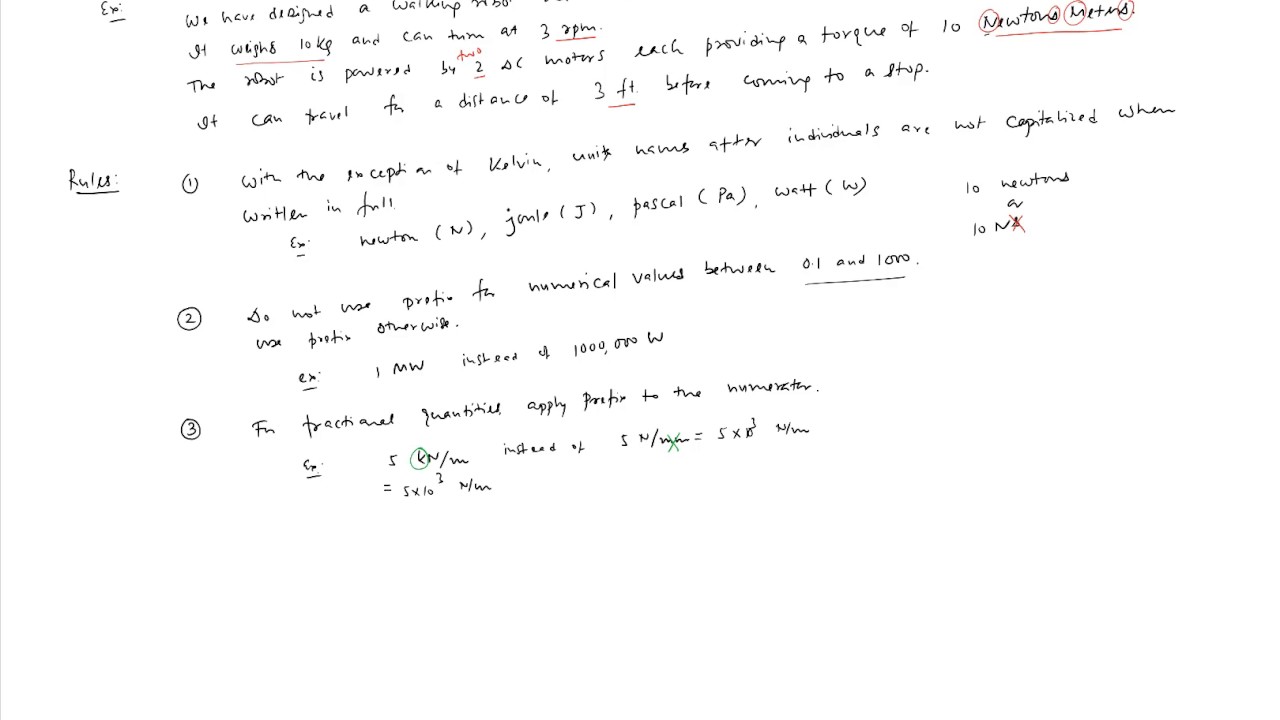 Ex: We have designed a walking
It weighs 10 kg and can turn at 3 rpm.
two
The robot is powered by 2 DC motors each providing a torque of 10 Newtons Meters.
It can travel for a distance of 3 ft. before coming to a stop.
Rules: ① With the exception of Kelvin, units names after individuals are not capitalized when
written in full.
Ex: newton (N), joule (J), pascal (Pa), watt (W)
10 newtons
or
10 Ns
② Do not use prefix for numerical values between 0.1 and 1000.
use prefix otherwise.
ex: 1 MW instead of 1000,000 W
③ For fractional quantities, apply prefix to the numerator.
Ex: 5 kN/m instead of 5 N/mm = 5 x 10³ N/m
= 5x10³ N/m